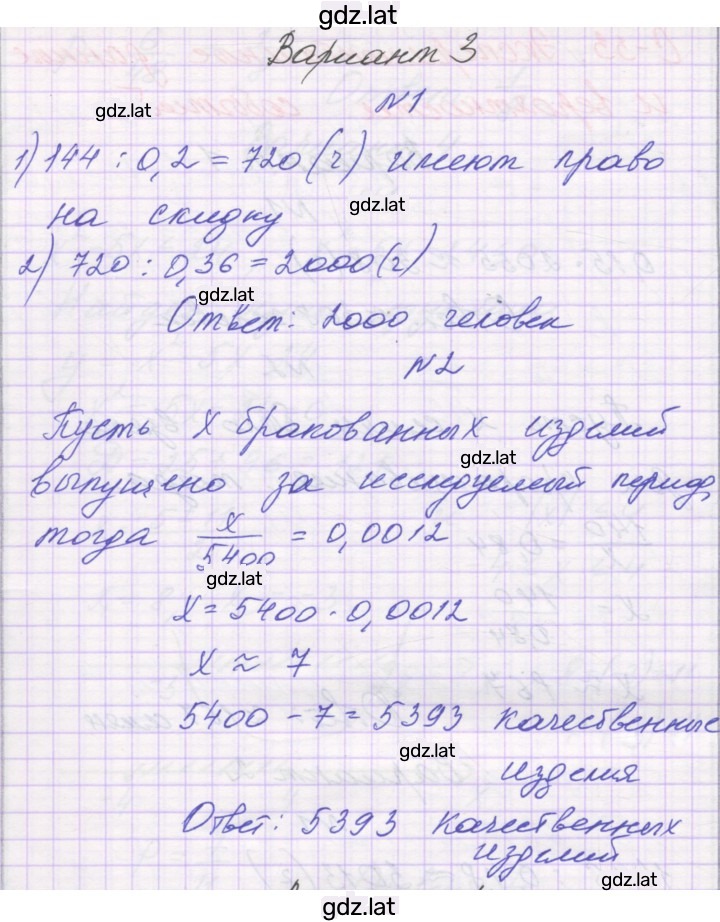 gdz.lat
Вариант 3
gdz.lat
№1
1) 144 : 0,2 = 720 (ч) имеют право
gdz.lat
на скидку
2) 720 : 0,36 = 2000 (ч)
gdz.lat
Ответ: 2000 человек
№2
Пусть x бракованных изделий
gdz.lat
выпущено за исследуемый период,
тогда x/5400 = 0,0012
gdz.lat
x = 5400 · 0,0012
x ≈ 7
5400 - 7 = 5393 качественные
gdz.lat
изделия
Ответ: 5393 качественных
изделий
gdz.lat
gdz.lat